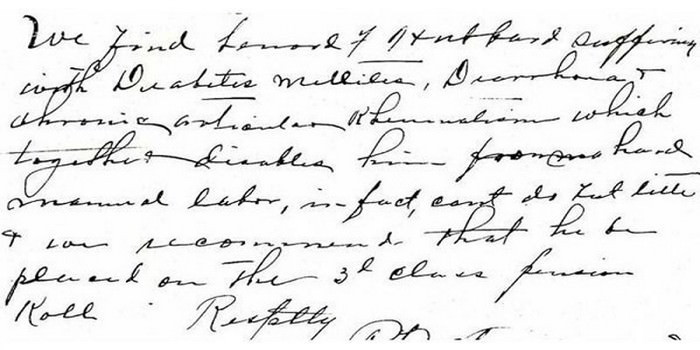 We find Lenard F Hubbard suffering
with Diabetes Mellites, Diarrhoea &
chronic articular Rheumatism which
together disables him from hard
manual labor, in fact, cant do but little
& we recommend that he be
placed on the 3d class pension
Roll Resptlly